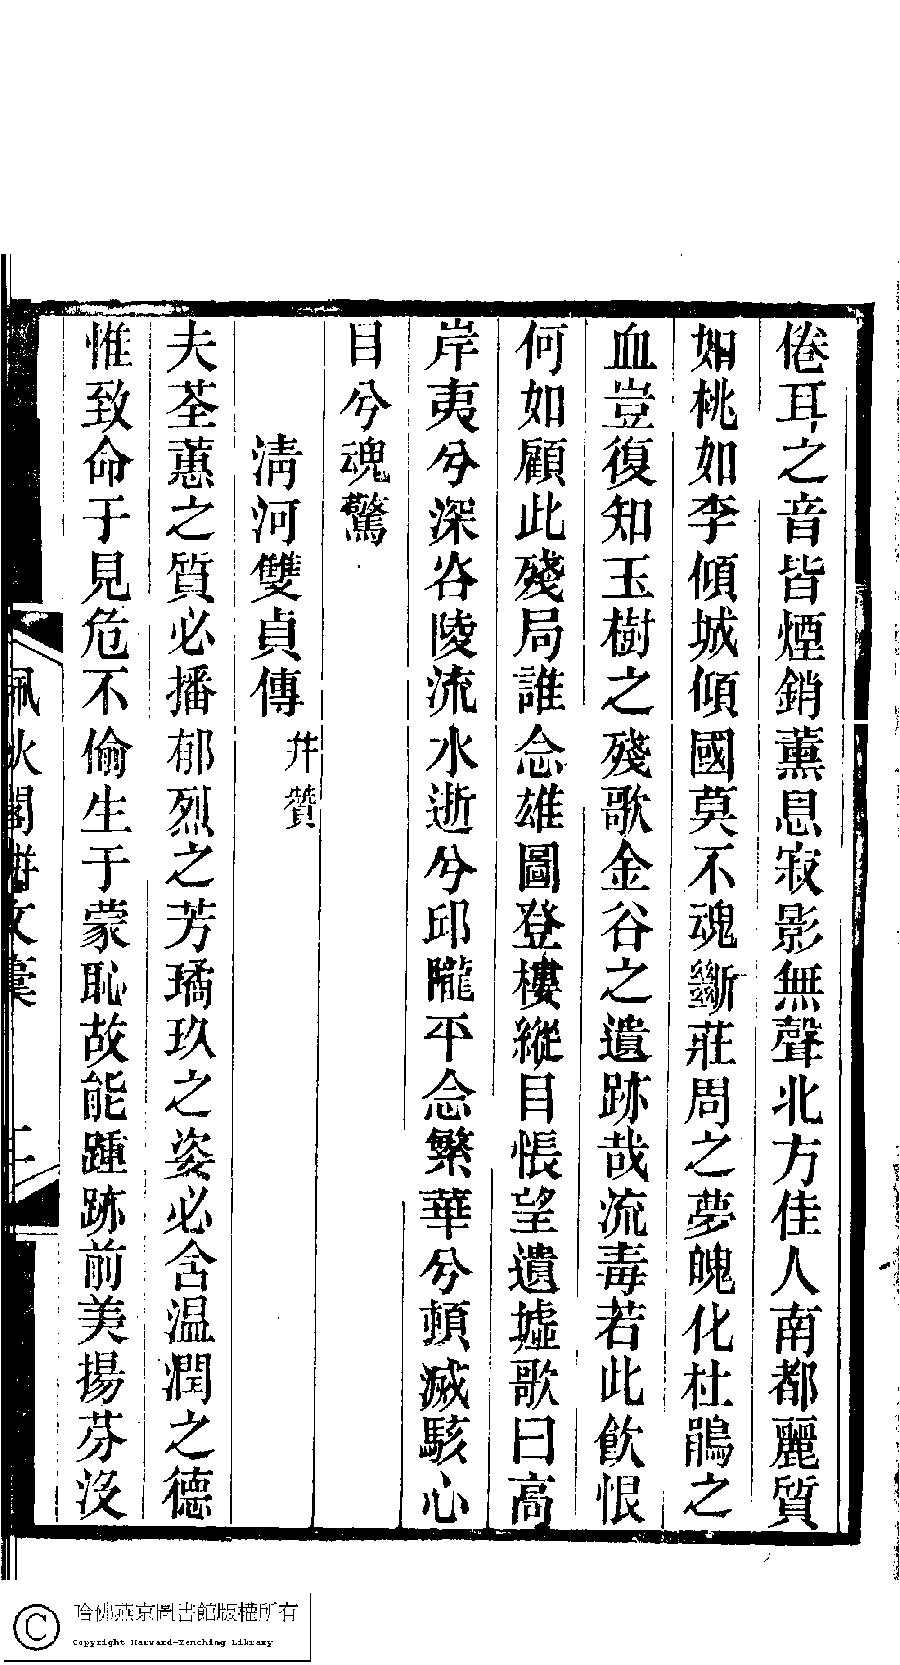 倦耳之音皆煙銷薰息寂影無聲北方佳人南都麗質
如桃如李傾城傾國莫不魂斷莊周之夢魄化杜鵑之
血豈復知玉樹之殘歌金谷之遺跡哉流毒若此飲恨
何如顧此殘局誰念雄圖登樓縱目悵望遺墟歌曰高
岸夷兮深谷陵流水逝兮邱隴平念繁華兮頓滅駭心
目兮魂驚
清河雙貞傳 幷贊
夫荃蕙之質必播郁烈之芳璚玖之姿必含温潤之德
惟致命于見危不偷生于蒙恥故能踵跡前美揚芬沒
閣駢文彙
哈佛燕京圖書館版權所有
Copyright Harvard-Yenching Library